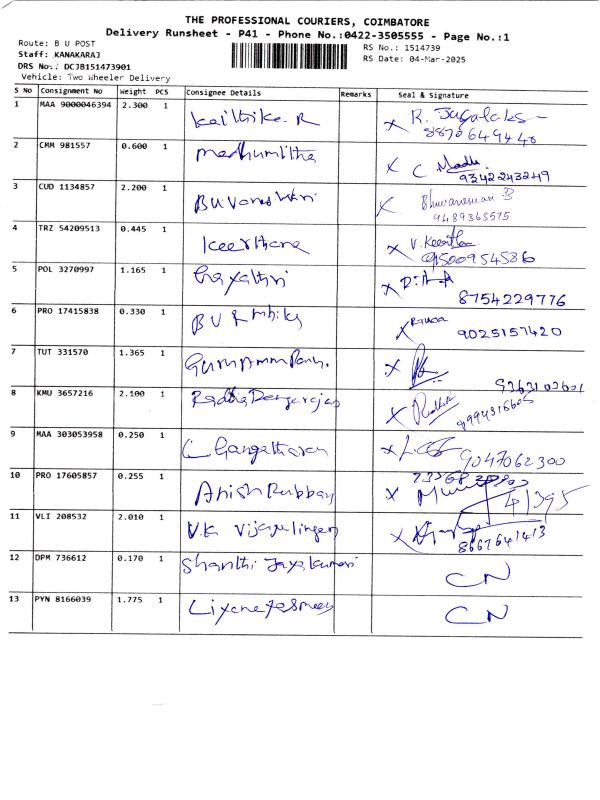 THE PROFESSIONAL COURIERS, COIMBATORE
Delivery Runsheet - P41 - Phone No.:0422-3505555 - Page No.:1
Route: B U POST
RS No.: 1514739
Staff: KANAKARAJ
RS Date: 04-Mar-2025
DRS No.: DCJB151473901
Vehicle: Two Wheeler Delivery
S No Consignment No Weight PCS Consignee Details Remarks Seal & Signature
1 MAA 9000046394 2.300 1 x R.
8870649440
2 CMM 981557 0.600 1 Madhumitha x C Madhi
9342243249
3 CUD 1134857 2.200 1 x Bhuvaneswari B
9489365575
4 TRZ 54209513 0.445 1 Keerthana x V. Keerthana
9500954586
5 POL 3270997 1.165 1 Gayathri x
8754229776
6 PRO 17415838 0.330 1 B U x
9025157420
7 TUT 331570 1.365 1 x
8 KMU 3657216 2.100 1 Radha x Radha
9 MAA 303053958 0.250 1 Gangatharan x
9047062300
10 PRO 17605857 0.255 1 Anish x
41395
11 VLI 208532 2.010 1 V.K Vijayalingam x
8667641413
12 DPM 736612 0.170 1 Shanthi Jayakumari CN
13 PYN 8166039 1.775 1 CN